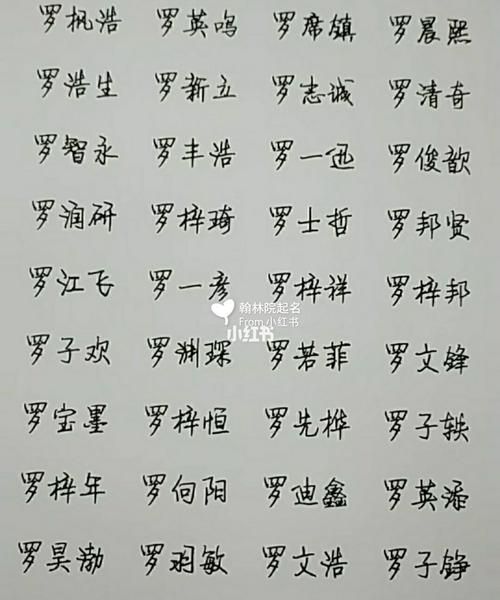 罗枫浩 罗英鸣 罗席镇 罗晨熙
罗浩生 罗新立 罗志诚 罗清奇
罗智永 罗丰浩 罗一迅 罗俊歆
罗润研 罗梓琦 罗士哲 罗邦贤
罗江飞 罗一彦 罗梓祥 罗梓邦
翰林院起名
From 小红书
小红书
罗子欢 罗渊琛 罗若菲 罗文锋
罗宝墨 罗梓恒 罗先桦 罗子轶
罗梓年 罗向阳 罗迪鑫 罗英添
罗昊渤 罗羽敏 罗文浩 罗子铮